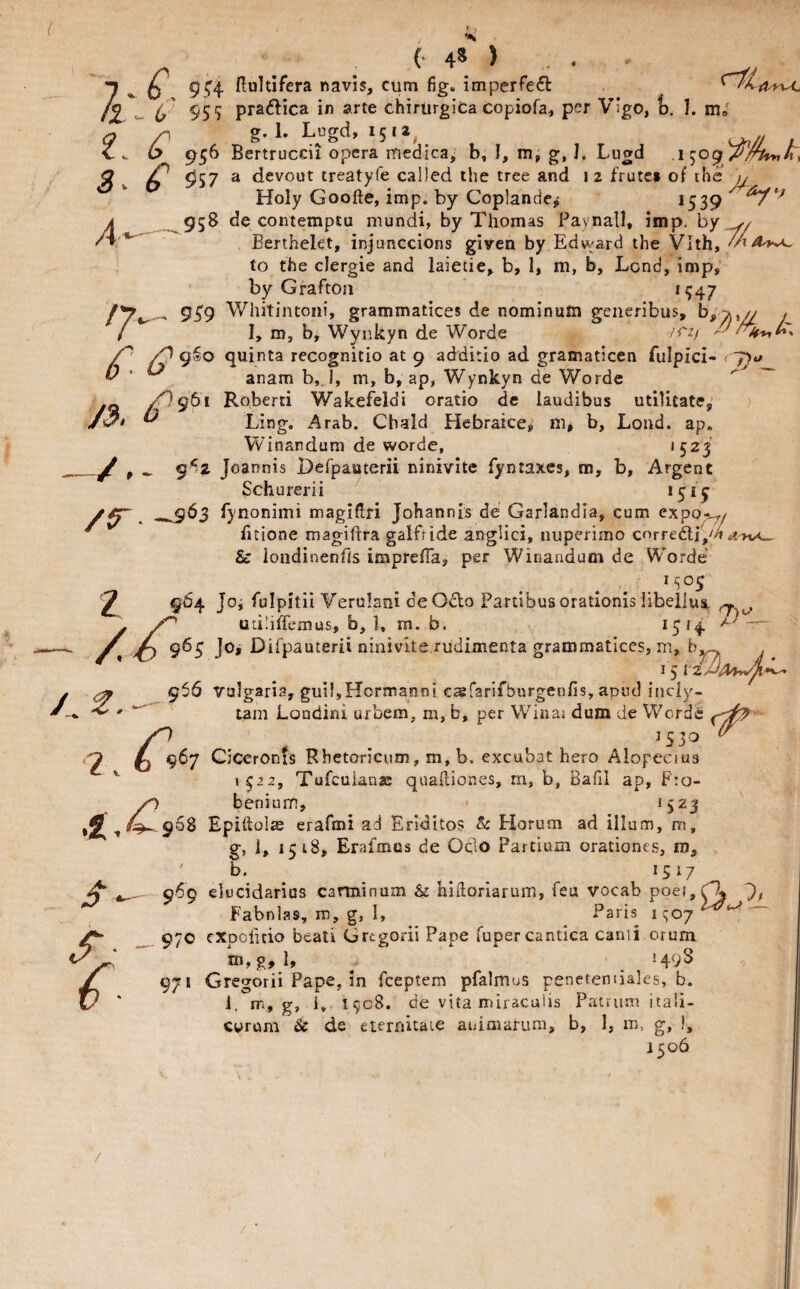 ( 48 )
7. 6. 954 ſtultifera navis, cum fig. imperfect
12 - 6 955 practica in arte chirurgica copioſa, per Vigo, b. l. m.
g. l. Lugd, 1512
2. 6 956 Bertruccii opera medica, b, l, m, g, l. Lugd 1509
3. 6 957 a devout treatyſe called the tree and 12 frutes of the
Holy Gooſte, imp. by Coplande, 1539
4. 958 de contemptu mundi, by Thomas Paynall, imp. by
Berthelet, injunccions given by Edward the VIth,
to the clergie and laietie, b, l, m, b, Lond, imp,
by Grafton 1547
17. 959 Whitintoni, grammatices de nominum generibus, b,
l, m, b, Wynkyn de Worde 1521
6. 6 960 quinta recognitio at 9 additio ad gramaticen ſulpici-
anam b, l, m, b, ap, Wynkyn de Worde
13. 6 961 Roberti Wakefeldi oratio de laudibus utilitate,
Ling. Arab. Chald Hebraice, m, b, Lond. ap.
Winandum de worde, 1523
1, - 962 Joannis Deſpauterii ninivite ſyntaxes, m, b, Argent
Schurerii 1515
15. 963 ſynonimi magiſtri Johannis de Garlandia, cum expo-
ſitione magiſtra galfride anglici, nuperimo correcti,
& londinenſis impreſſa, per Winandum de Worde
1505
2 964 Jo, ſulpitii Verulani de Octo Partibus orationis libellus
utiliſſemus, b, l, m. b. 1514
1. 6 965 Jo, Diſpauterii ninivite rudimenta grammatices, m, b,
1512
1. 2. 966 vulgaria, guil, Hormanni cæſariſburgenſis, apud incly-
tam Londini urbem, m, b, per Winandum de Worde
1530
2. 6 967 Ciceronis Rhetoricum, m, b. excubat hero Alopecius
1522, Tuſculanæ quaſtiones, m, b, Baſil ap, Fro-
benium, 1523
2, 6 968 Epiſtolæ eraſmi ad Eriditos & Horum ad illum, m,
g, l, 1518, Eraſmus de Octo Partium orationes, m,
b. 1517
5 969 elucidarius carminum & hiſtoriarum, ſeu vocab poet,
Fabnlas, m, g, l, Paris 1507
5. 970 expoſitio beati Gregorii Pape ſuper cantica canticorum
m, g, l, 1498
6. 971 Gregorii Pape, in ſceptem pſalmos penetentiales, b.
l. m, g, l, 1508. de vita miraculis Patrum itali-
corum & de eternitate animarum, b, l, m, g, l,
1506